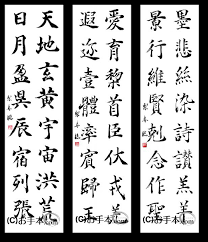 天地玄黄宇宙洪荒
日月盈昃辰宿列張
(C)お手本.com
愛育黎首臣伏戎羌
遐迩壹體率賓歸王
(C)お手本.com
墨悲絲染詩讃羔羊
景行維賢剋念作聖
(C)お手本.com